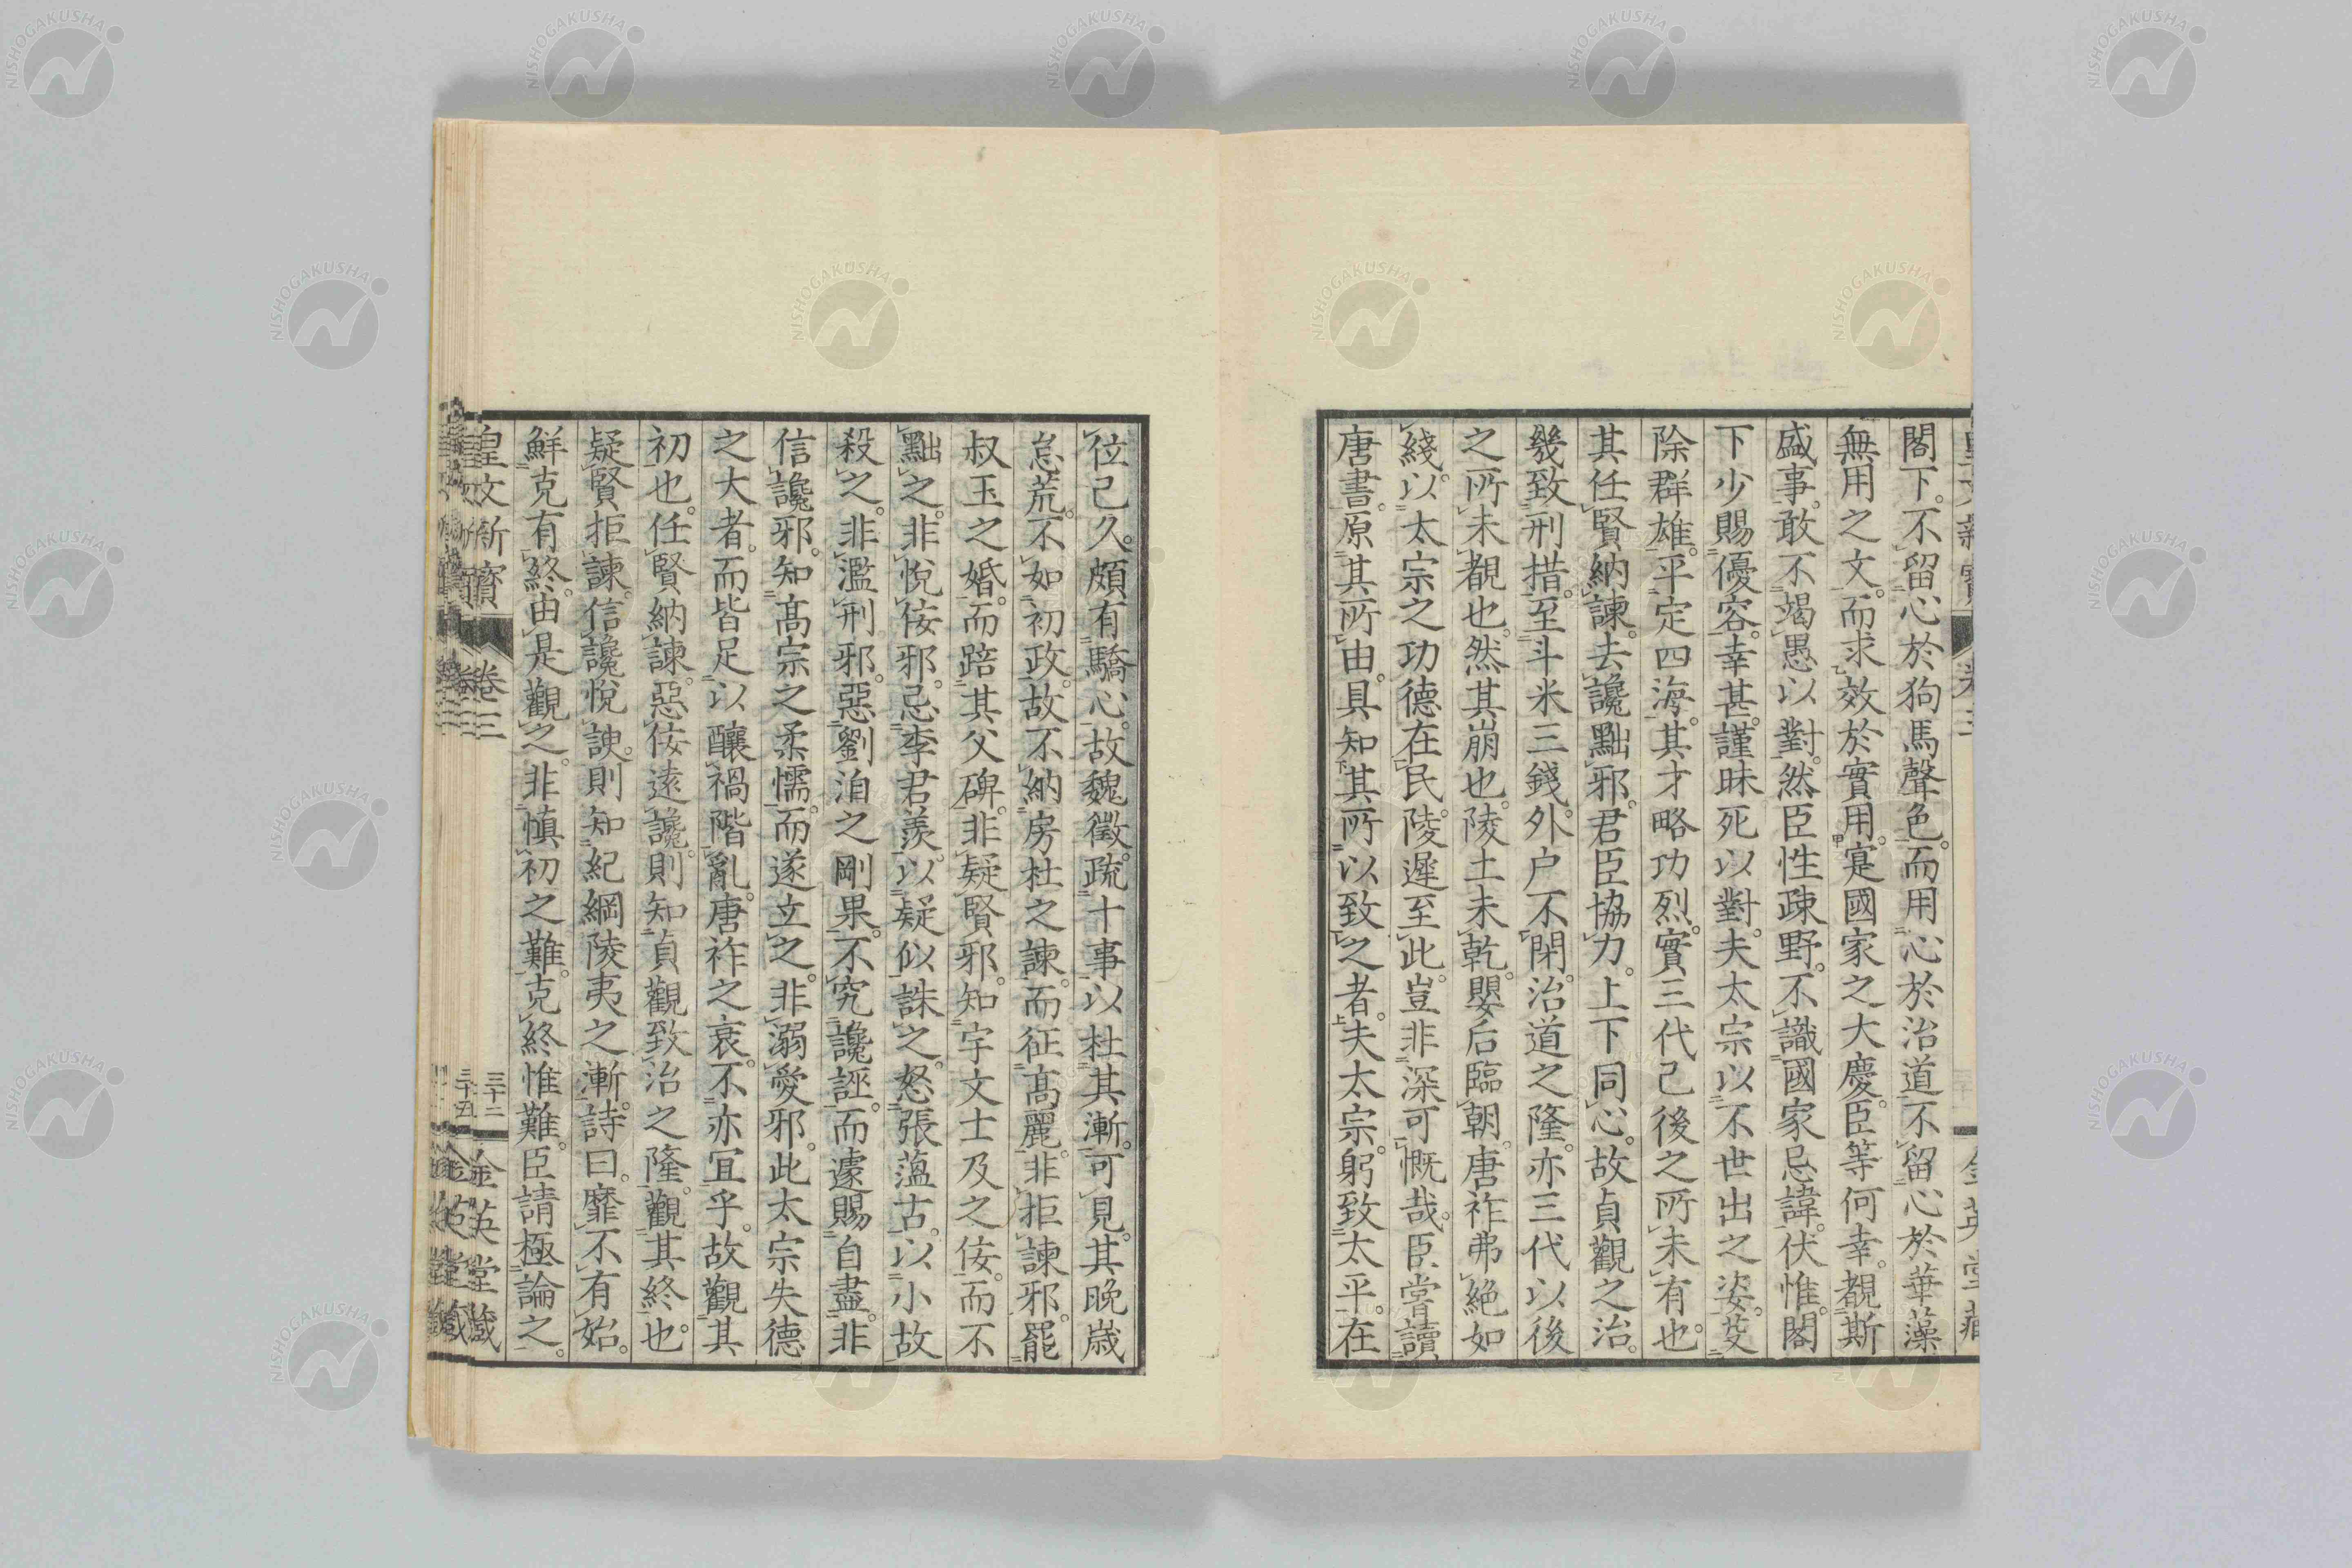 閣下。不留心於狗馬聲色。而用心於治道。不留心於華藻
無用之文。而求效於實用。寔國家之大慶。臣等何幸。覩斯
盛事。敢不竭愚以對。然臣性疎野。不識國家忌諱。伏惟。閣
下少賜優容。幸甚。謹昧死以對。夫太宗以不世出之姿。芟
除群雄。平定四海。其才略功烈。實三代已後之所未有也。
其任賢納諫。去讒黜邪。君臣協力。上下同心。故貞觀之治。
幾致刑措。至斗米三錢。外戶不閉。治道之隆。亦三代以後
之所未覩也。然其崩也。陵土未乾。嬰后臨朝。唐祚弗絕如
綫。以太宗之功德在民。陵遲至此。豈非深可慨哉。臣嘗讀
唐書。原其所由。具知其所以致之者。夫太宗。躬致太平。在
位已久。頗有驕心。故魏徵疏十事以杜其漸。可見。其晚歲
怠荒。不如初政。故不納房杜之諫。而征高麗。非拒諫邪。罷
叔玉之婚。而踣其父碑。非疑賢邪。知宇文士及之佞。而不
黜之。非悅佞邪。忌李君羨。以疑似誅之。怒張蘊古。以小故
殺之。非濫刑邪。惡劉洎之剛果。不究讒誣。而遽賜自盡。非
信讒邪。知高宗之柔懦。而遂立之。非溺愛邪。此太宗失德
之大者。而皆足以釀禍階亂。唐祚之衰。不亦宜乎。故觀其
初也。任賢納諫。惡佞遠讒。則知貞觀致治之隆。觀其終也。
疑賢拒諫。信讒悅諛。則知紀綱陵夷之漸。詩曰。靡不有始。
鮮克有終。由是觀之。非慎初之難。克終惟難。臣請極論之。
皇文新寶 卷三 三十二 金英堂藏